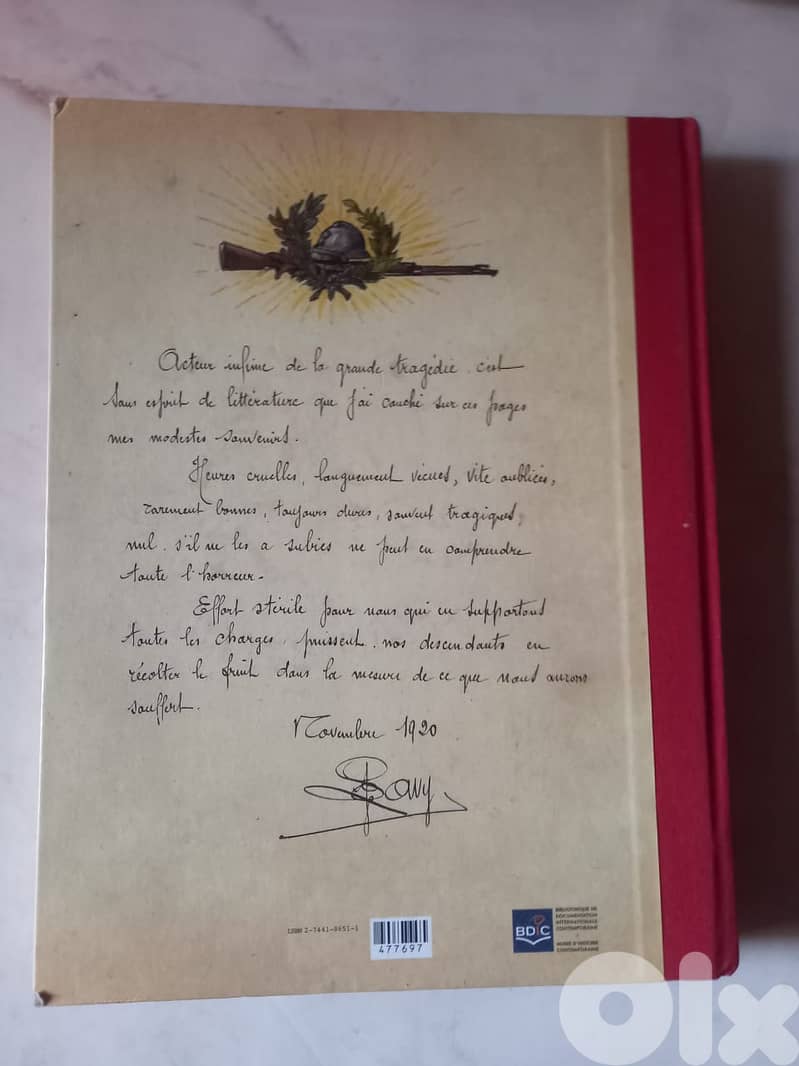 Acteur infime de la grande tragédie, c'est
sans esprit de littérature que j'ai couché sur ces pages
mes modestes souvenirs.
Heures cruelles, longuement vécues, vite oubliées,
rarement bonnes, toujours dures, souvent tragiques,
nul, s'il ne les a subies ne peut en comprendre
toute l'horreur.
Effort stérile pour nous qui en supportons
toutes les charges, puissent nos descendants en
récolter le fruit dans la mesure de ce que nous aurons
souffert.
Novembre 1920
ISBN 2-7441-0651-1
477697
BDIC
BIBLIOTHEQUE DE
DOCUMENTATION
INTERNATIONALE
CONTEMPORAINE
MUSÉE D'HISTOIRE
CONTEMPORAINE
olx